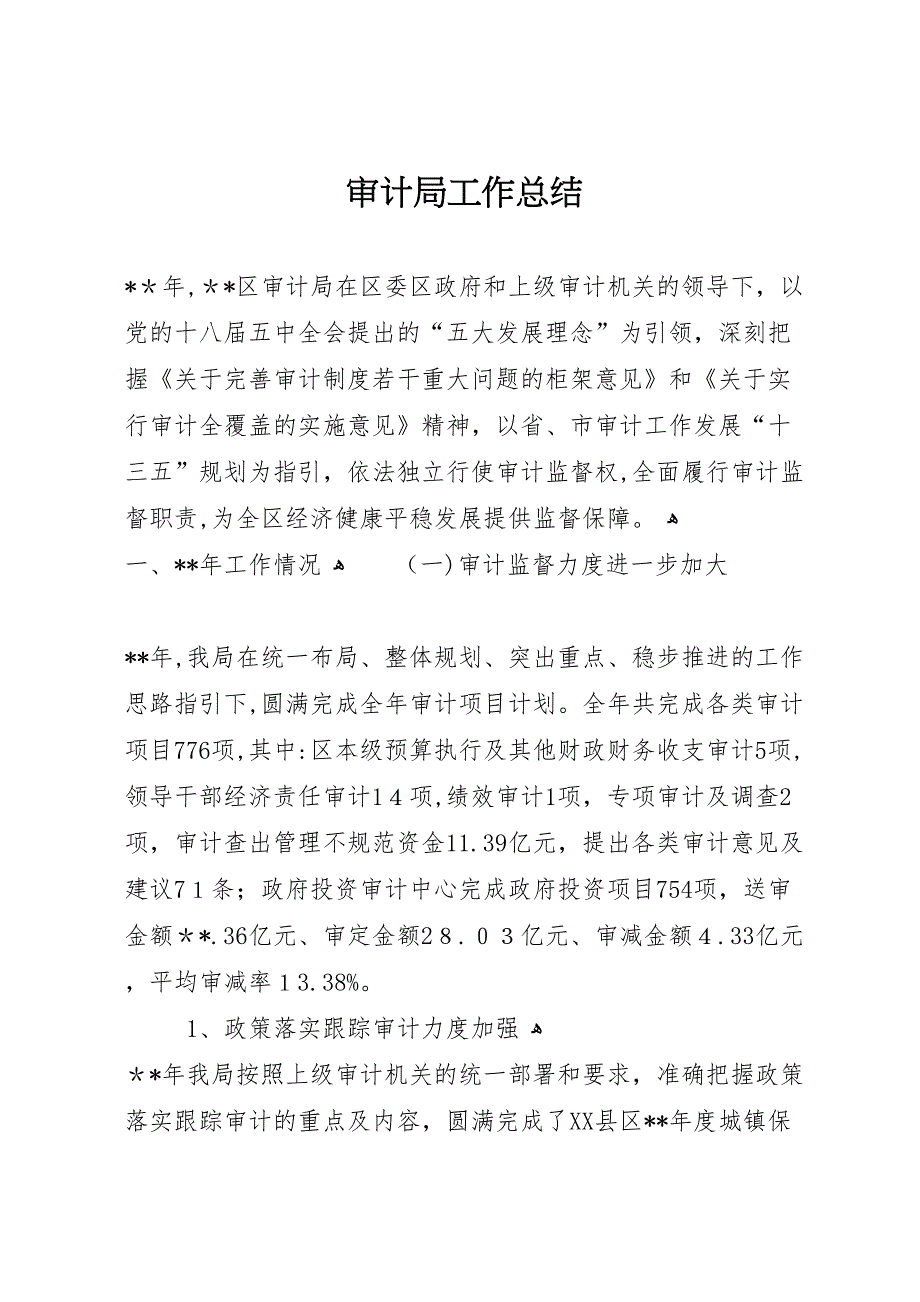 审计局工作总结
**年,**区审计局在区委区政府和上级审计机关的领导下，以
党的十八届五中全会提出的“五大发展理念”为引领，深刻把
握《关于完善审计制度若干重大问题的柜架意见》和《关于实
行审计全覆盖的实施意见》精神，以省、市审计工作发展“十
三五”规划为指引，依法独立行使审计监督权,全面履行审计监
督职责,为全区经济健康平稳发展提供监督保障。 ﻫ
一、**年工作情况 ﻫ （一)审计监督力度进一步加大
**年,我局在统一布局、整体规划、突出重点、稳步推进的工作
思路指引下,圆满完成全年审计项目计划。全年共完成各类审计
项目776项,其中:区本级预算执行及其他财政财务收支审计5项,
领导干部经济责任审计1４项,绩效审计1项，专项审计及调查2
项，审计查出管理不规范资金11.39亿元，提出各类审计意见及
建议7１条；政府投资审计中心完成政府投资项目754项，送审
金额**.36亿元、审定金额2８.０３亿元、审减金额４.33亿元
，平均审减率１3.38%。
1、政策落实跟踪审计力度加强 ﻫ
**年我局按照上级审计机关的统一部署和要求，准确把握政策
落实跟踪审计的重点及内容，圆满完成了XX县区**年度城镇保